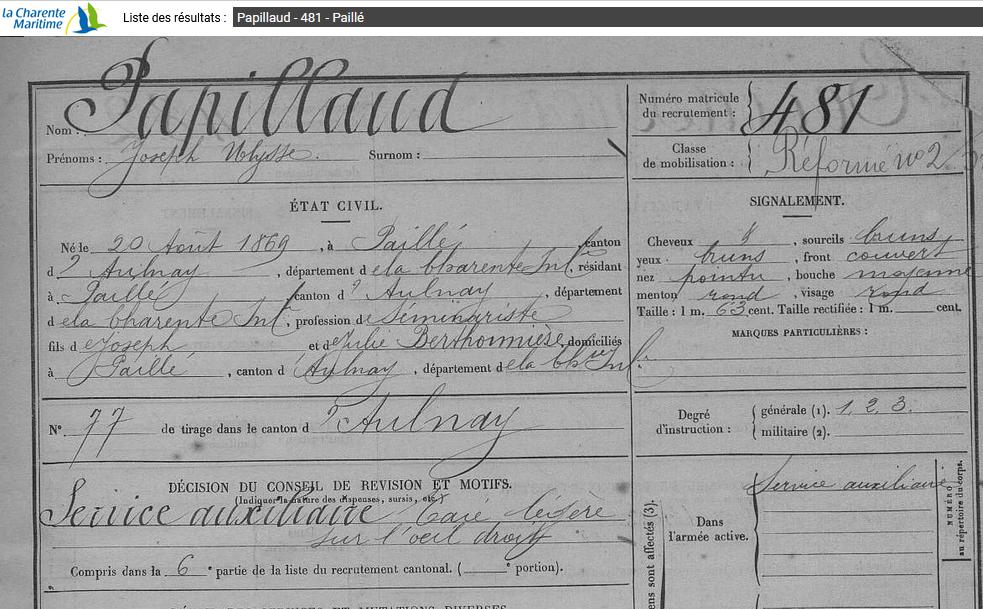 la Charente
Maritime
Liste des résultats : Papillaud - 481 - Paillé
Nom : Papillaud
Prénoms : Joseph Ulysse. Surnom :
Numéro matricule
du recrutement : 481
Classe
de mobilisation : Réformé no 2
ÉTAT CIVIL.
Né le 20 Août 1869, à Paillé, canton
d' Aulnay, département de la Charente Infre, résidant
à Paillé, canton d' Aulnay, département
de la Charente Infre, profession de Séminariste
fils de Joseph et de Julie Berthommière, domiciliés
à Paillé, canton d' Aulnay, département de la Chte Infre
N° 77 de tirage dans le canton d' Aulnay
SIGNALEMENT.
Cheveux, sourcils bruns
yeux bruns, front couvert
nez pointu, bouche moyenne
menton rond, visage rond
Taille : 1 m. 63 cent. Taille rectifiée : 1 m. cent.
MARQUES PARTICULIÈRES :
Degré
d'instruction :
générale (1). 1. 2. 3.
militaire (2).
DÉCISION DU CONSEIL DE REVISION ET MOTIFS.
(Indiquer la nature des dispenses, sursis, etc.)
Service auxiliaire Taie légère
sur l'oeil droit
Compris dans la 6e partie de la liste du recrutement cantonal. ( e portion).
Dans
l'armée active.
Service auxiliaire
NUMÉRO
au répertoire du corps.
ens sont affectés (3).